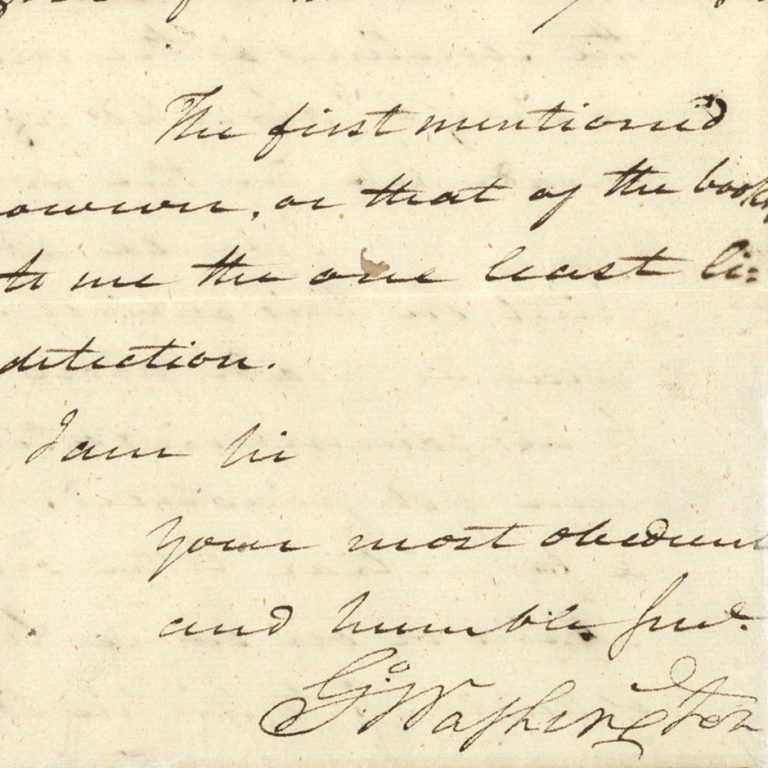 The first mentioned
, or that of the book
to me the one least li=
detection.
I am Sir
Your most obedient
and humble Serv.
G:Washington